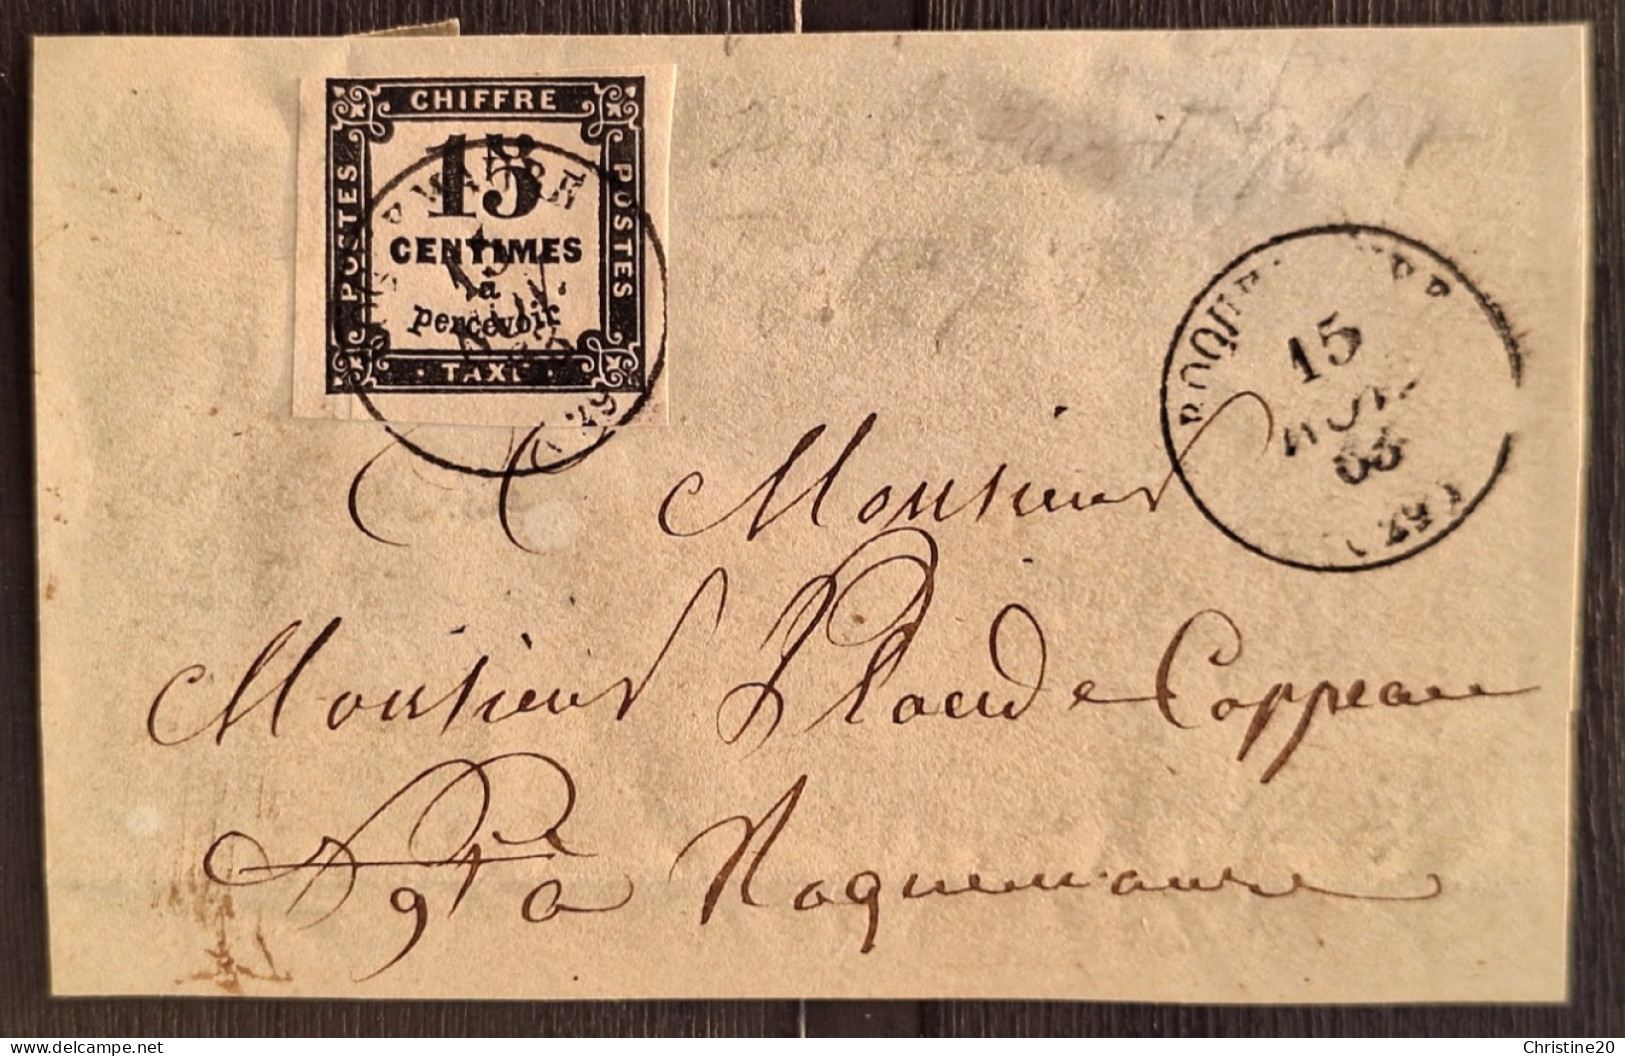 CHIFFRE
POSTES
POSTES
15
CENTIMES
à
percevoir
TAXE
15
NOV.
63
A Monsieur
Monsieur Placide Coppeau
à Roquemaure
delcampe.net
Christine20